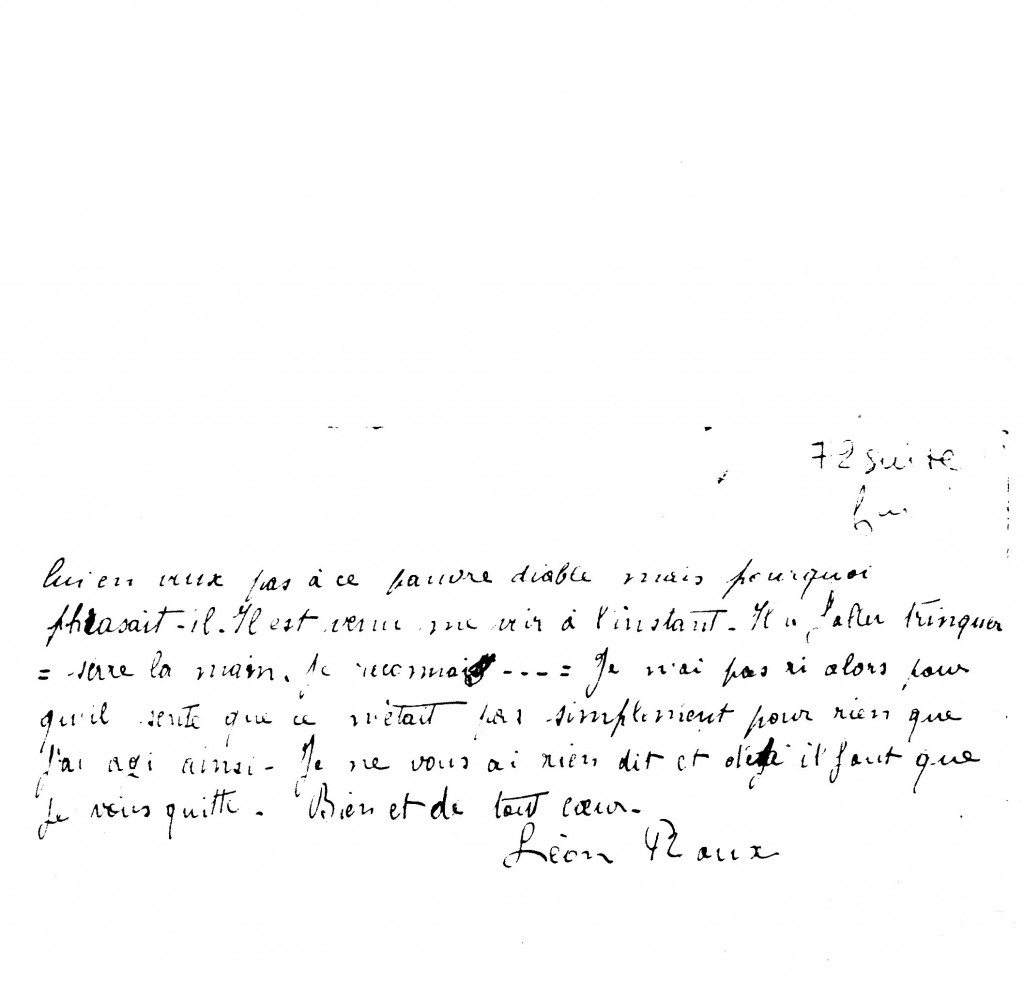 72 suite
lui en veux pas à ce pauvre diable mais pourquoi
phrasait-il. Il est venu me voir à l'instant - Il trinquer
= serre la main. Je reconnais ---- = Je n'ai pas ri alors pour
qu'il sente que ce n'était pas simplement pour rien que
j'ai agi ainsi - Je ne vous ai rien dit et déjà il faut que
je vous quitte - Bien et de tout cœur -
Léon Roux